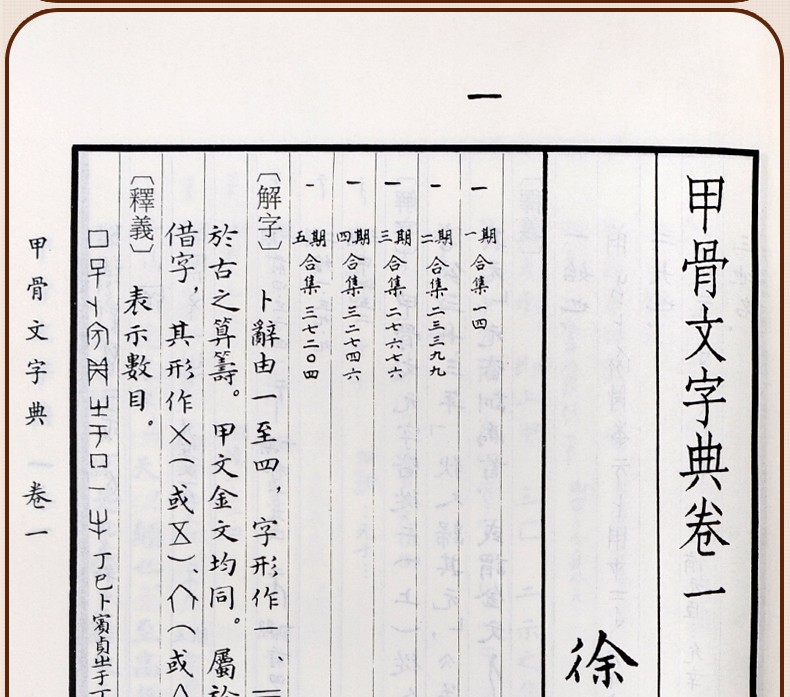 一
甲骨文字典卷一
徐
一 一期 合集 一四
一 二期 合集 二三三九九
一 三期 合集 二七六七六
一 四期 合集 三二七四六
一 五期 合集 三七二〇四
〔解字〕 卜辭由一至四，字形作一、二
於古之算籌。甲文金文均同。屬於
借字，其形作㐅（或𠄡）、∧（或
〔釋義〕
表示數目。
丁巳卜賓貞㞢于丁
甲骨文字典 卷一